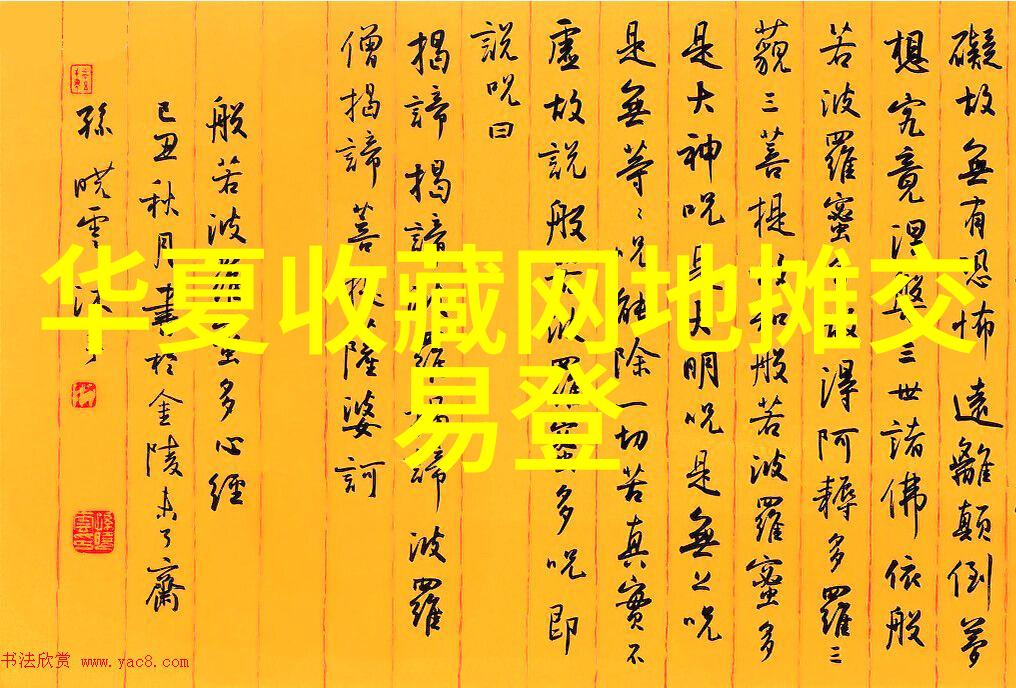 礙故無有恐怖遠離顛倒夢
想究竟涅槃三世諸佛依般
若波羅蜜多故得阿耨多羅三
藐三菩提故知般若波羅蜜多
是大神咒是大明咒是無上咒
是無等〻咒能除一切苦真實不
虛故說般若波羅蜜多咒即
說咒曰
揭諦揭諦波羅揭諦波羅
僧揭諦菩提薩婆訶
般若波羅蜜多心經
己丑秋月書於金陵未了齋
孫曉雲沐手
华夏收藏网地摊交
易登
书法欣赏 www.yac8.com